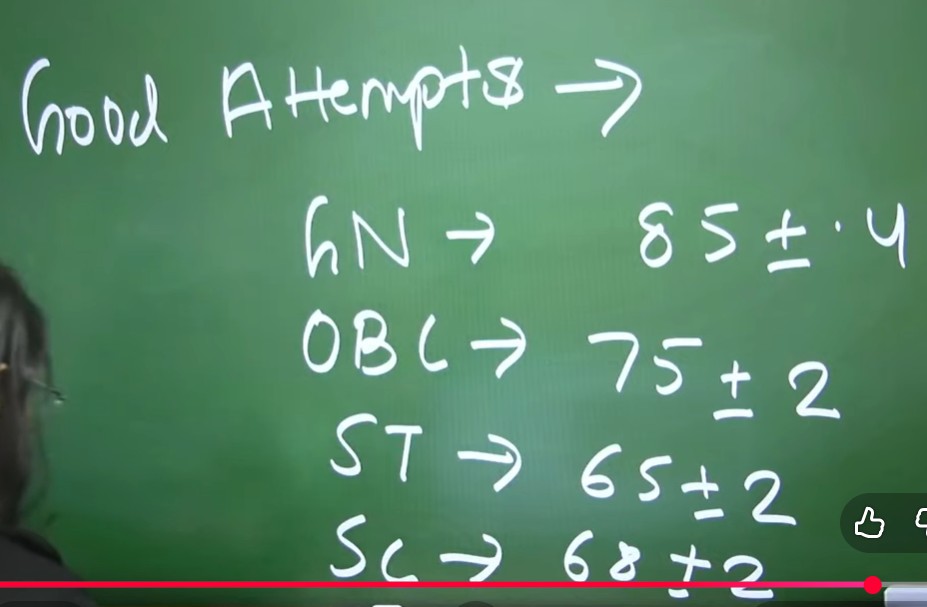 Good Attempts →
GN → 85 ± · 4
OBC → 75 ± 2
ST → 65 ± 2
SC → 68 ± 2